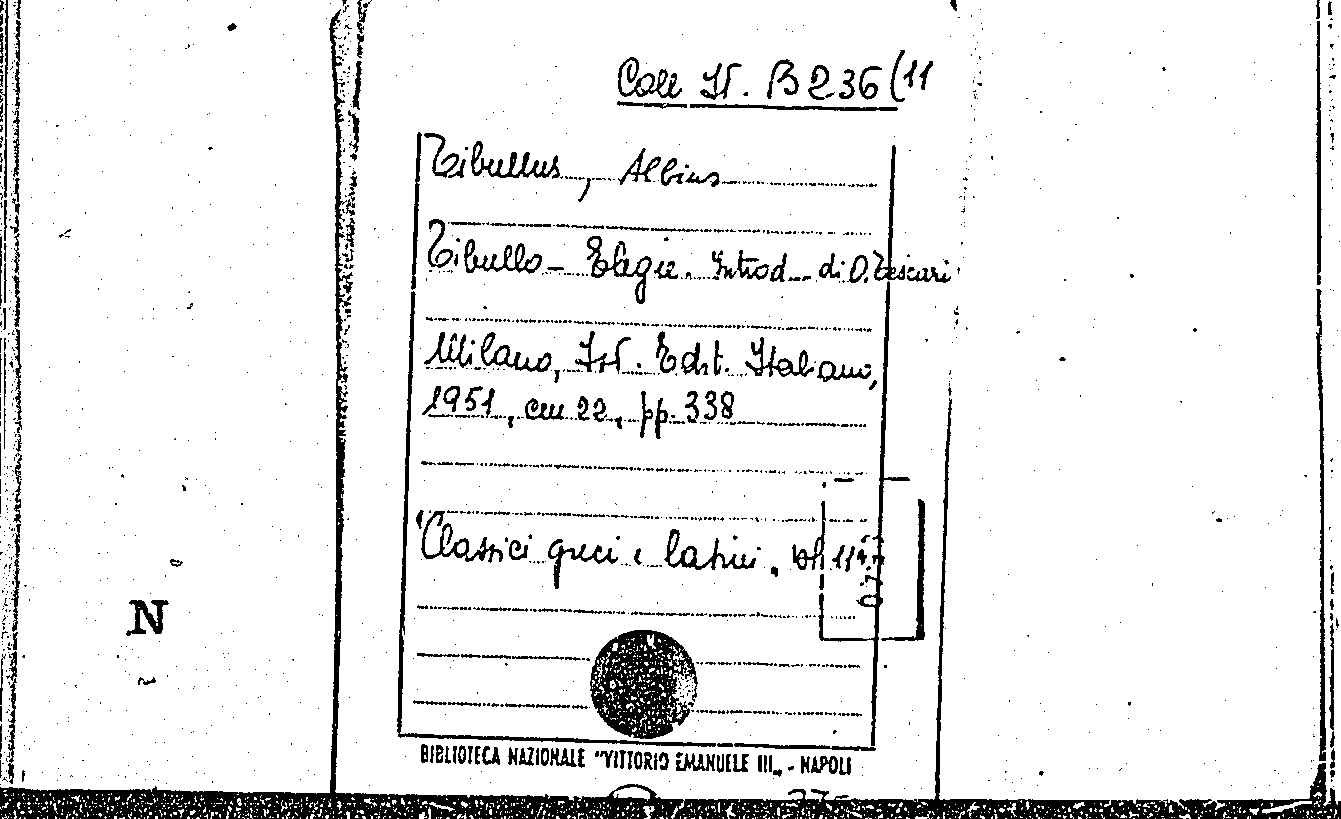 Coll It. B 236 (11
Tibullus, Albius
Tibullo - Elegie. Introd. di O. Tescari
Milano, Ist. Edit. Italiano,
1951, cm 22, pp. 338
"Classici greci e latini.
N
BIBLIOTECA NAZIONALE "VITTORIO EMANUELE III„ - NAPOLI